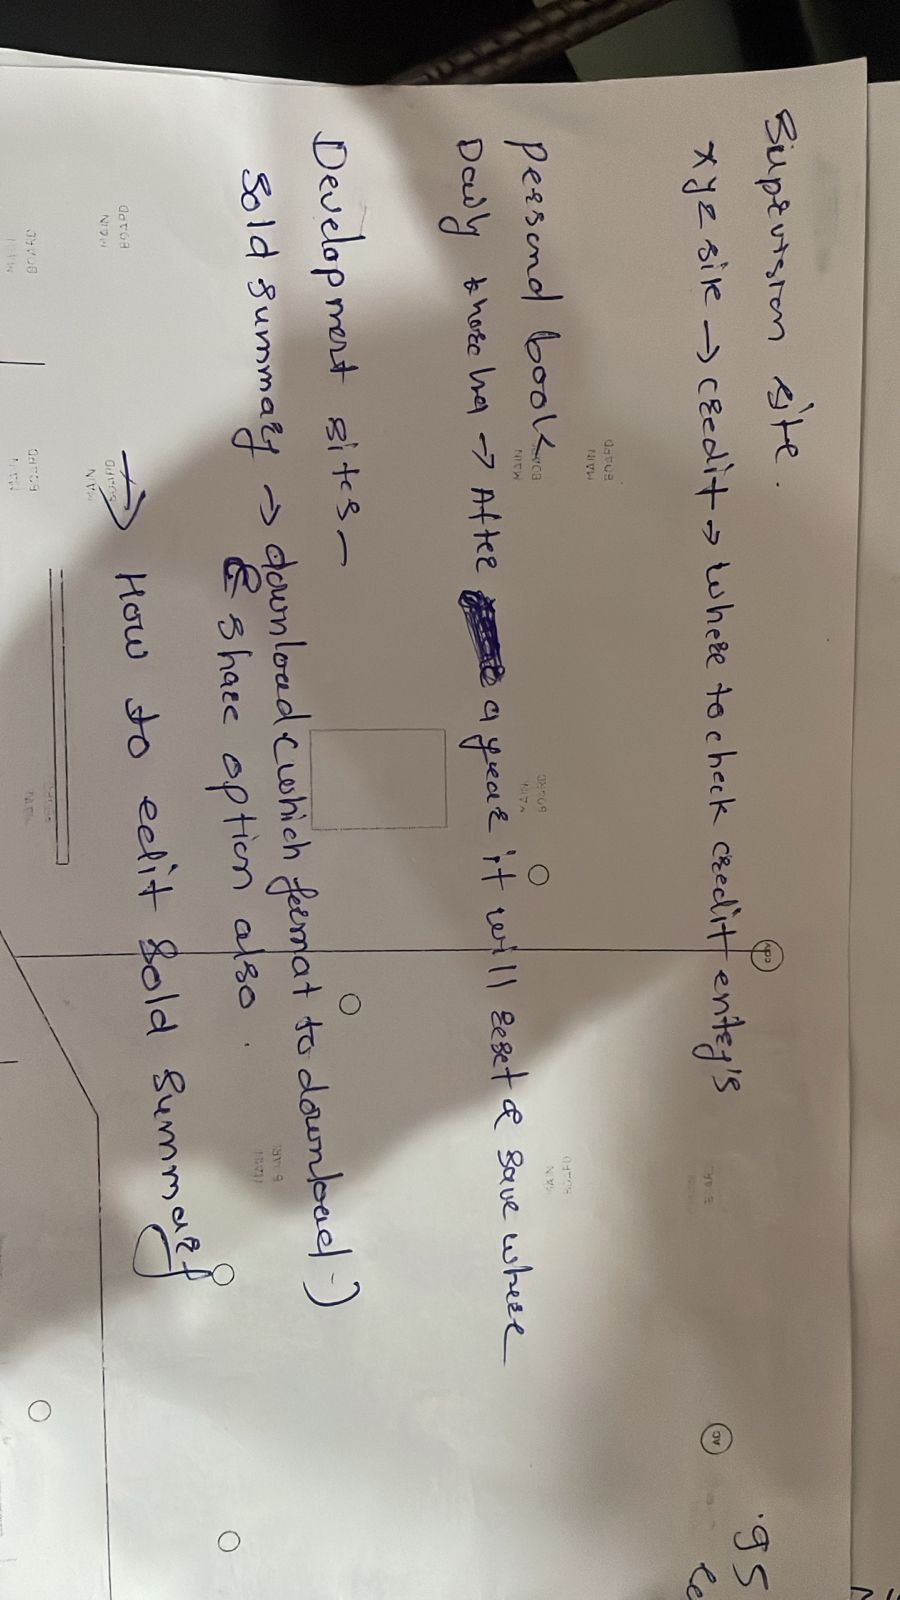 Supervision site.
xyz site → credit → where to check credit entry's
personal book
Daily → After a year it will reset & save where
Development sites -
Sold summary → download (which format to download.)
& share option also.
→ How to edit Sold Summary